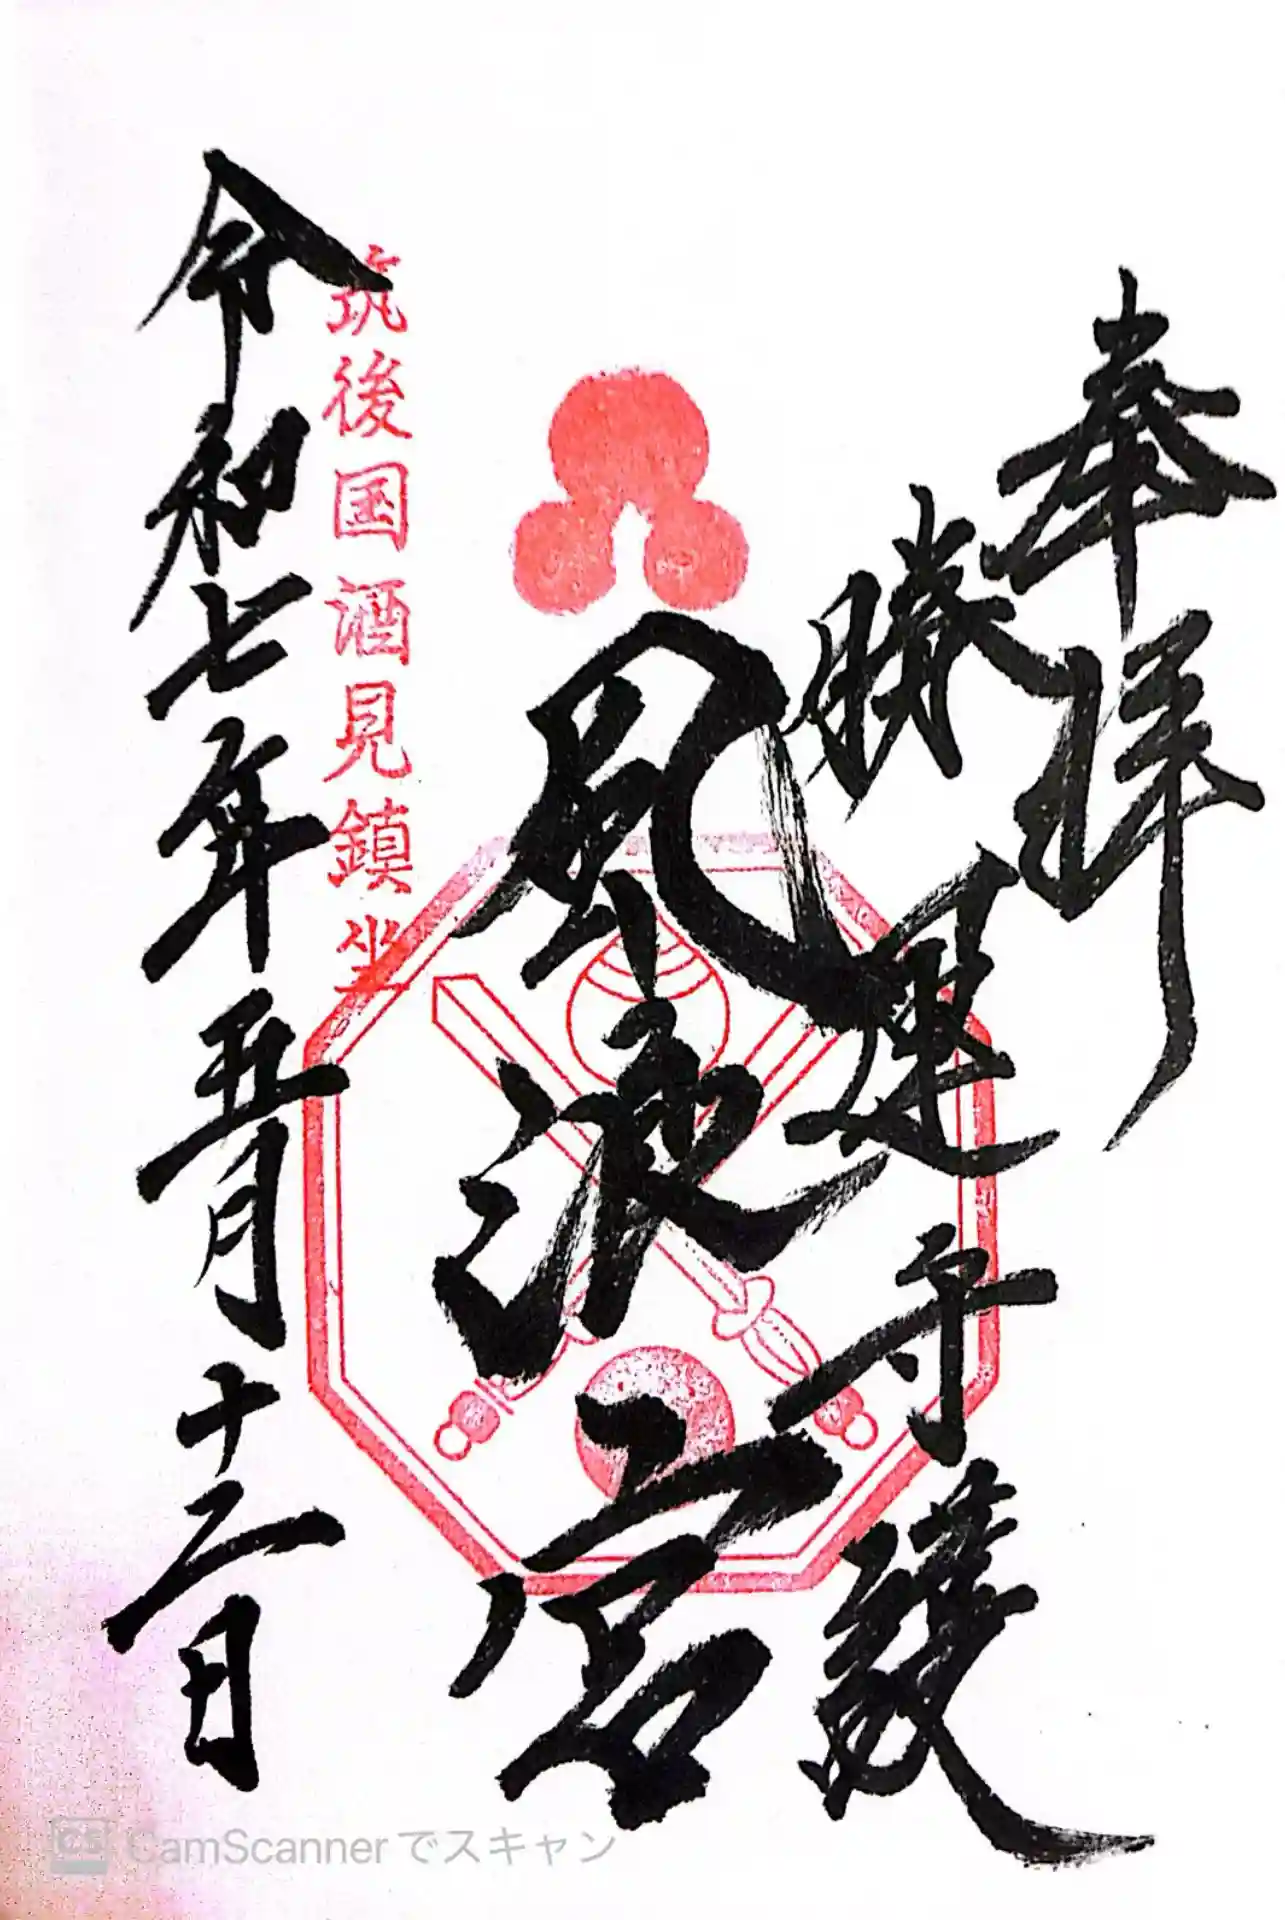 奉拝
勝運守護
風浪宮
筑後国酒見鎮坐
令和七年五月十二日
CS CamScannerでスキャン